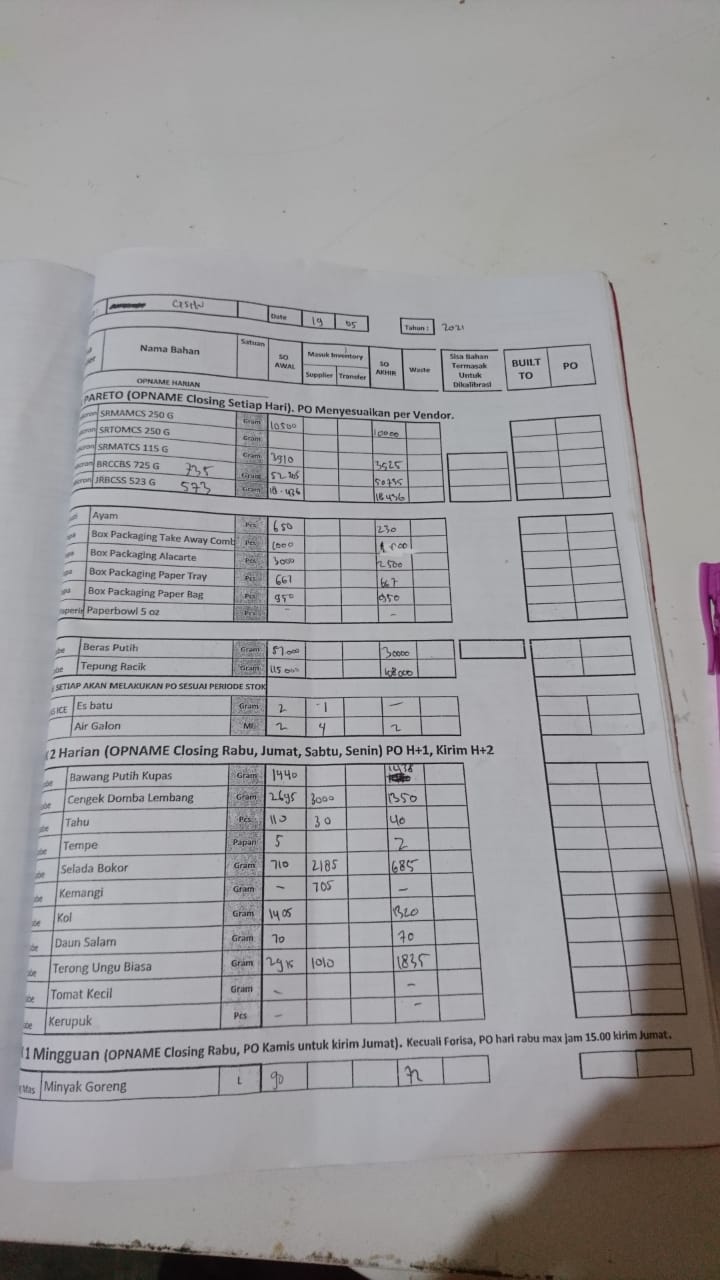 Date 19 05 Tahun : 2021
Nama Bahan Satuan SO AWAL Masuk Inventory SO AKHIR Waste Sisa Bahan Termasak Untuk Dikalibrasi BUILT TO PO
Supplier Transfer
OPNAME HARIAN
PARETO (OPNAME Closing Setiap Hari). PO Menyesuaikan per Vendor.
SRMAMCS 250 G Gram 10500 10000
SRTOMCS 250 G Gram
SRMATCS 115 G Gram 3910 3525
BRCCBS 725 G 735 Gram 50735
JRBCSS 523 G 573 Gram 18436
Ayam Pcs 650 230
Box Packaging Take Away Comb Pcs 1000
Box Packaging Alacarte Pcs 3000 2500
Box Packaging Paper Tray Pcs 667 667
Box Packaging Paper Bag Pcs 950 950
Paperbowl 5 oz Pcs - -
Beras Putih Gram 30000
Tepung Racik Gram 115000 108000
SETIAP AKAN MELAKUKAN PO SESUAI PERIODE STOK
ICE Es batu Gram 2 1 -
Air Galon Ml 2 4 2
2 Harian (OPNAME Closing Rabu, Jumat, Sabtu, Senin) PO H+1, Kirim H+2
Bawang Putih Kupas Gram 1440 1438
Cengek Domba Lembang Gram 2695 3000 1350
Tahu Pcs 110 30 40
Tempe Papan 5 2
Selada Bokor Gram 710 2185 685
Kemangi Gram - 705 -
Kol Gram 1405 1320
Daun Salam Gram 70 70
Terong Ungu Biasa Gram 1010 1835
Tomat Kecil Gram - -
Kerupuk Pcs - -
1 Mingguan (OPNAME Closing Rabu, PO Kamis untuk kirim Jumat). Kecuali Forisa, PO hari rabu max jam 15.00 kirim Jumat.
Mas Minyak Goreng L 90 72